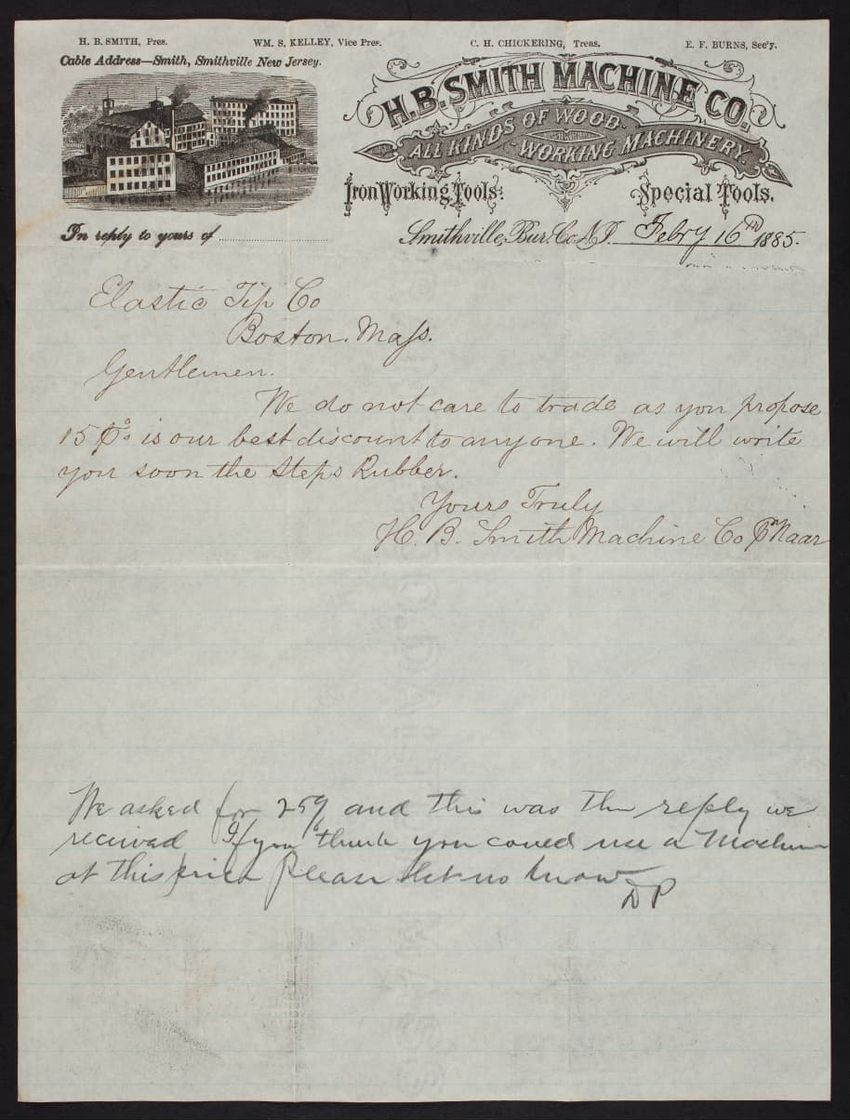 H. B. SMITH, Pres. WM. S. KELLEY, Vice Pres. C. H. CHICKERING, Treas. E. F. BURNS, Sec'y.
Cable Address—Smith, Smithville New Jersey.
H. B. SMITH MACHINE CO.
ALL KINDS OF WOOD-
WORKING MACHINERY.
Iron Working Tools. Special Tools.
In reply to yours of
Smithville, Bur. Co. N.J. Febry 16th 1885.
Elastic Tip Co
Boston. Mass.
Gentlemen.
We do not care to trade as you propose
15 % is our best discount to anyone. We will write
you soon the Steps Rubber.
Yours Truly
H. B. Smith Machine Co
We asked for 25% and this was the reply we
received If you think you could use a Machine
at this price Please let us know
D P